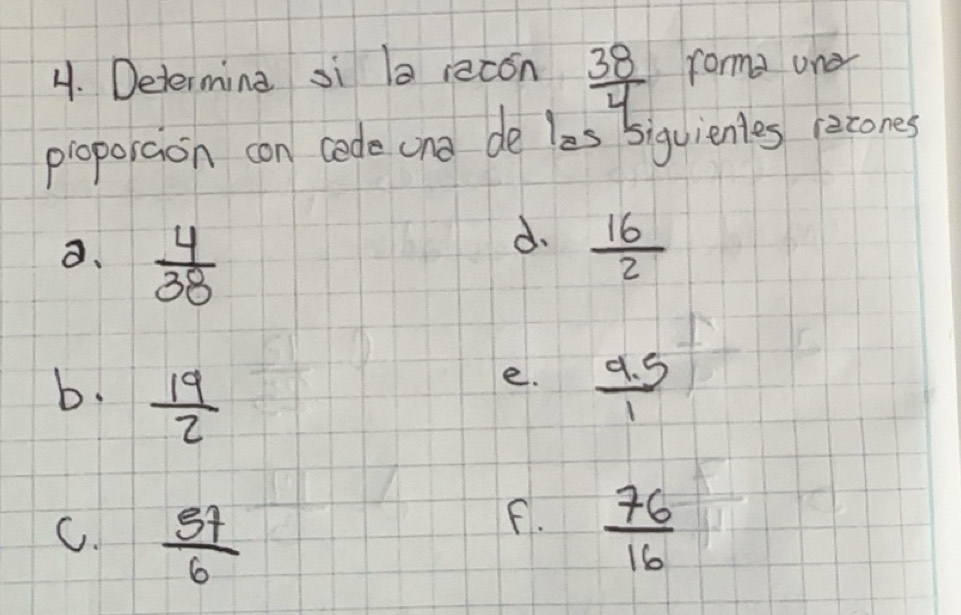 4. Determina si la razón 38/4 forma una
proporción con cada una de las siguientes razones
a. 4/38
d. 16/2
b. 19/2
e. 9.5/1
c. 57/6
f. 76/16